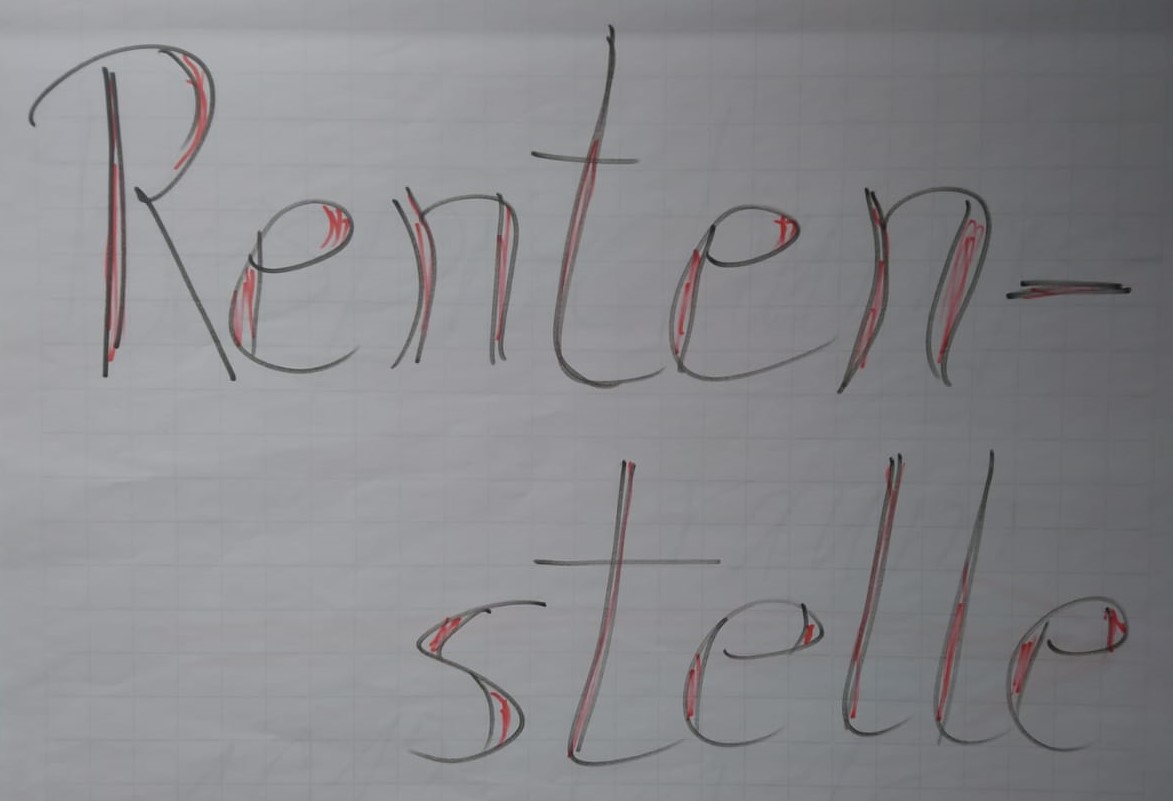 Renten-
stelle